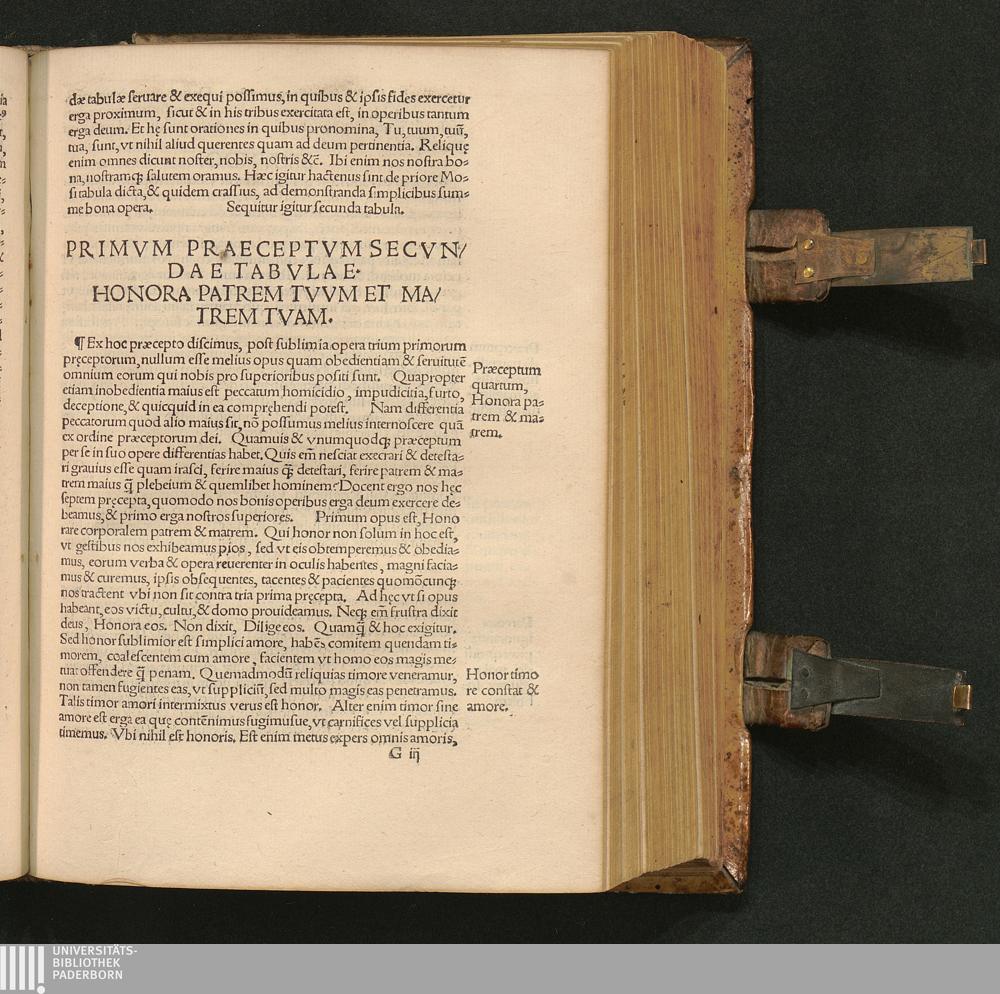 dæ tabulæ seruare & exequi possimus, in quibus & ipsis fides exercetur
erga proximum, sicut & in his tribus exercitata est, in operibus tantum
erga deum. Et hę sunt orationes in quibus pronomina, Tu, tuum, tuū,
tua, sunt, vt nihil aliud querentes quam ad deum pertinentia. Reliquę
enim omnes dicunt noster, nobis, nostris &c̄. Ibi enim nos nostra bo-
na, nostramq; salutem oramus. Hæc igitur hactenus sint de priore Mo-
si tabula dicta, & quidem crassius, ad demonstranda simplicibus sum-
me bona opera. Sequitur igitur secunda tabula.
PRIMVM PRAECEPTVM SECVN/
DAE TABVLAE.
HONORA PATREM TVVM ET MA/
TREM TVAM.
¶ Ex hoc præcepto discimus, post sublimia opera trium primorum
pręceptorum, nullum esse melius opus quam obedientiam & seruitutē
omnium eorum qui nobis pro superioribus positi sunt. Quapropter
etiam inobedientia maius est peccatum homicidio, impudicitia, furto,
deceptione, & quicquid in ea compręhendi potest. Nam differentia
peccatorum quod alio maius sit, nō possumus melius internoscere quā
ex ordine præceptorum dei. Quamuis & vnumquodq; præceptum
per se in suo opere differentias habet. Quis em̄ nesciat execrari & detesta-
ri grauius esse quam irasci, ferire maius q̄; detestari, ferire patrem & ma-
trem maius q̄ plebeium & quemlibet hominem? Docent ergo nos hęc
septem pręcepta, quomodo nos bonis operibus erga deum exercere de-
beamus, & primo erga nostros superiores. Primum opus est, Hono
rare corporalem patrem & matrem. Qui honor non solum in hoc est,
vt gestibus nos exhibeamus pios, sed vt eis obtemperemus & obedia-
mus, eorum verba & opera reuerenter in oculis habentes, magni facia-
mus & curemus, ipsis obsequentes, tacentes & pacientes quomōcunq;
nos tractent vbi non sit contra tria prima pręcepta. Ad hęc vt si opus
habeant, eos victu, cultu, & domo prouideamus. Neq; em̄ frustra dixit
deus, Honora eos. Non dixit, Dilige eos. Quamq̄ & hoc exigitur.
Sed honor sublimior est simplici amore, habēs comitem quendam ti-
morem, coalescentem cum amore, facientem vt homo eos magis me-
tuat offendere q̄ penam. Quemadmodū reliquias timore veneramur,
non tamen fugientes eas, vt suppliciū, sed multo magis eas penetramus.
Talis timor amori intermixtus verus est honor. Alter enim timor sine
amore est erga ea quę contēnimus fugimusue, vt carnifices vel supplicia
timemus. Vbi nihil est honoris. Est enim metus expers omnis amoris,
G iij
Præceptum
quartum,
Honora pa-
trem & ma-
trem.
Honor timo
re constat &
amore.
UNIVERSITÄTS-
BIBLIOTHEK
PADERBORN